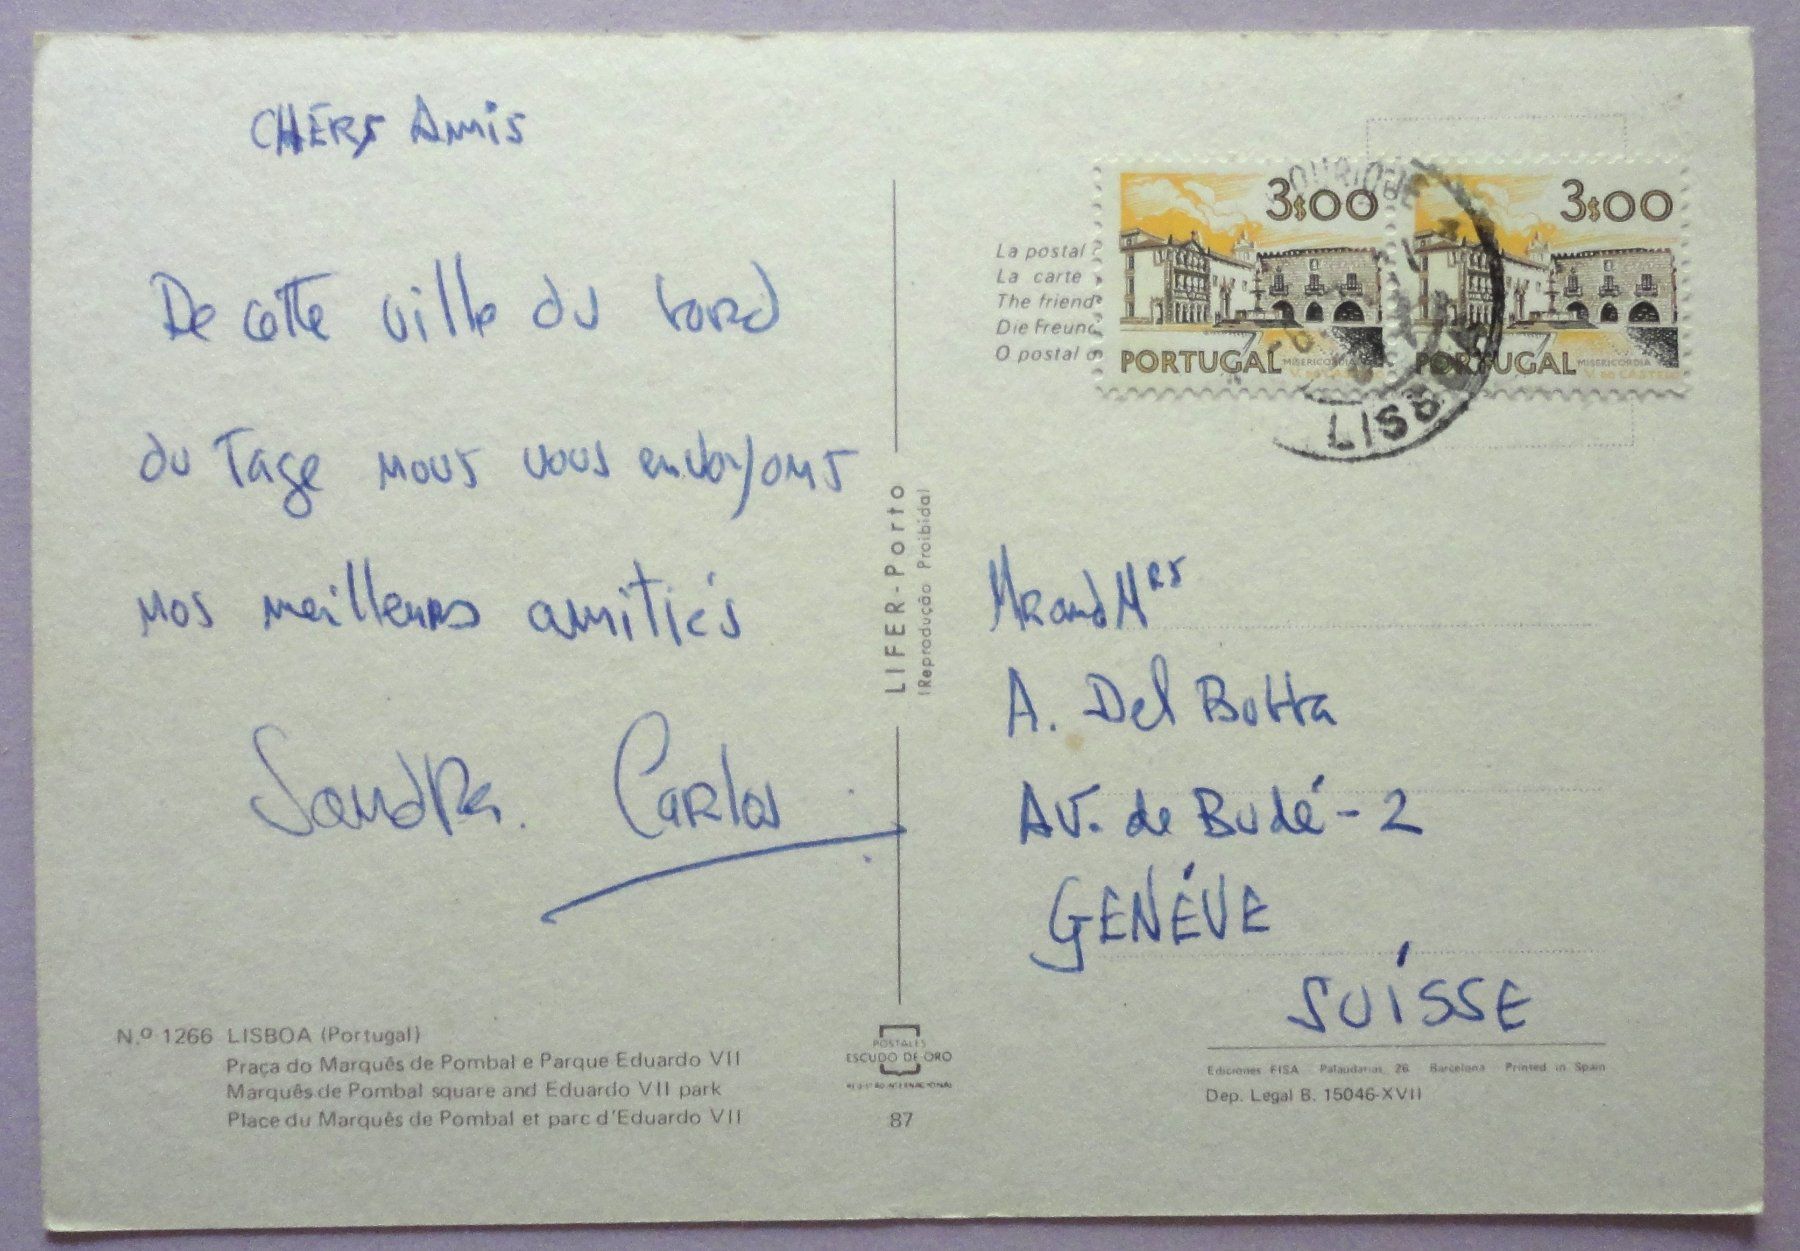 CHERS AMIS
De cette ville du bord
du Tage nous vous envoyons
nos meilleurs amitiés
Sandra. Carlos
Nº 1266 LISBOA (Portugal)
Praça do Marquês de Pombal e Parque Eduardo VII
Marquês de Pombal square and Eduardo VII park
Place du Marquês de Pombal et parc d'Eduardo VII
LIFER-Porto
(Reprodução Proibida)
POSTALES
ESCUDO DE ORO
87
La postal
La carte
The friend
Die Freund
O postal
3$00
PORTUGAL MISERICÓRDIA
V. DO CASTELO
3$00
PORTUGAL MISERICÓRDIA
V. DO CASTELO
OURIQUE
Mr and Mrs
A. Del Botta
AV. de Budé - 2
GENÉVE
SUÍSSE
Ediciones FISA Palaudarias, 26 Barcelona Printed in Spain
Dep. Legal B. 15046-XVII